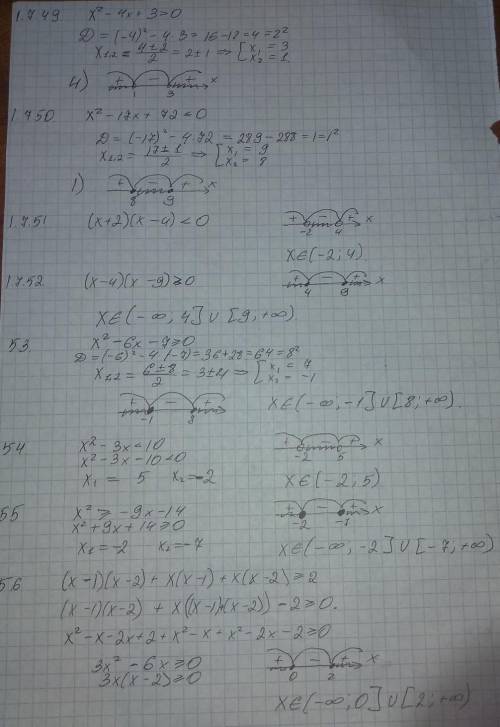 1.7.49 x² - 4x + 3 > 0
D = (-4)² - 4·3 = 16 - 12 = 4 = 2²
x₁,₂ = (4 ± 2)/2 = 2 ± 1 ⇒ [x₁ = 3
x₂ = 1.
4) + - + x
1 3
1.7.50 x² - 17x + 72 < 0
D = (-17)² - 4·72 = 289 - 288 = 1 = 1²
x₁,₂ = (17 ± 1)/2 ⇒ [x₁ = 9
x₂ = 8
1) + - + x
8 9
1.7.51 (x+2)(x-4) < 0 + - + x
-2 4
x∈(-2; 4).
1.7.52. (x-4)(x-9) ≥ 0 + - + x
4 9
x∈(-∞, 4] ∪ [9; +∞).
53. x² - 6x - 7 ≥ 0
D = (-6)² - 4·(-7) = 36 + 28 = 64 = 8²
x₁,₂ = (6 ± 8)/2 = 3 ± 4 ⇒ [x₁ = 7
x₂ = -1
+ - +
-1 8
x∈(-∞, -1] ∪ [8; +∞).
54 x² - 3x < 10 + - + x
x² - 3x - 10 < 0 -2 5
x₁ = 5 x₂ = -2 x∈(-2; 5)
55 x² ≥ -9x - 14 + - + x
x² + 9x + 14 ≥ 0 -2 -7
x₁ = -2 x₂ = -7 x∈(-∞, -2] ∪ [-7; +∞)
5.6 (x-1)(x-2) + x(x-1) + x(x-2) ≥ 2
(x-1)(x-2) + x((x-1)+(x-2)) - 2 ≥ 0.
x² - x - 2x + 2 + x² - x + x² - 2x - 2 ≥ 0
3x² - 6x ≥ 0 + - + x
3x(x-2) ≥ 0 0 2
x∈(-∞; 0] ∪ [2; +∞)